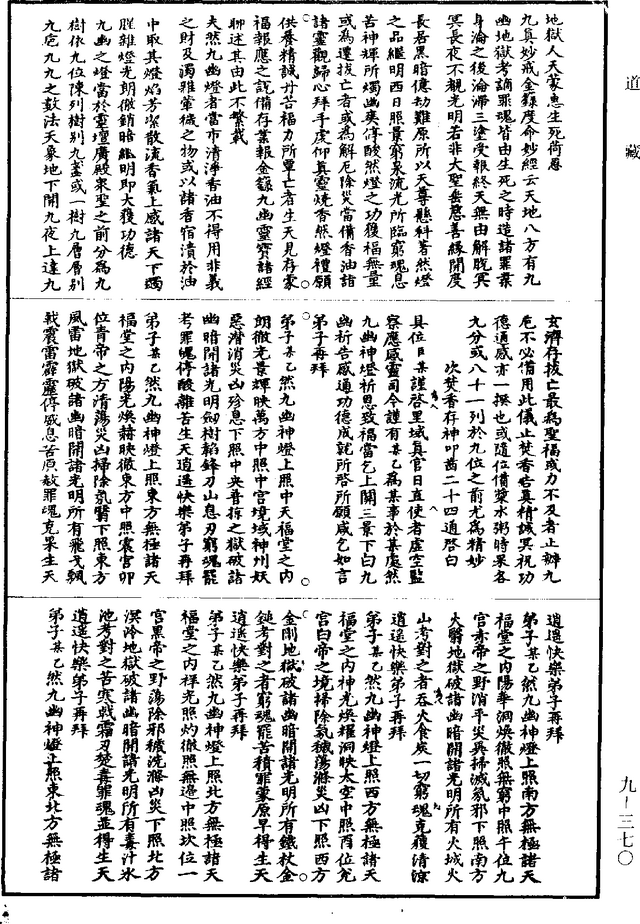 道藏
地獄人天蒙惠生死荷恩
九真妙戒金籙度命妙經云天地八方有九
幽地獄考謫罪魂皆由生死之時造諸罪業
身淪之後淪滯三塗受報終天無由解脫冥
冥長夜不覩光明若非大聖垂慈善緣開度
長居黑暗億劫難原所以天尊懸科著然燈
之品繼明西日照景窮泉流光所臨窮魂息
苦神輝所燭幽爽停酸然燈之功獲福無量
或為遷拔亡者或為解厄除災當備香油詣
諸靈觀歸心拜手虔仰真靈燒香然燈禮願
供養精誠丹苦福力所覃亡者生天見存蒙
福報應之說備存業報金籙九幽靈寶諸經
聊述其由此不繁載
夫然九幽燈者當市清淨香油不得用非義
之財及濁雜葷穢之物或以諸香宿漬於油
中取其燈焰芳潔散流香氣上感諸天下燭
腥雜燈光朗徹銷暗繼明即大獲功德
九幽之燈當於靈壇廣殿衆聖之前分為九
樹依九位陳列樹別九盞或一樹九層層別
九巵九九之數法天象地下開九夜上達九
玄濟存拔亡最為聖福或力不及者止辦九
巵不必備用此儀止焚香告真精誠冥祝功
德通感亦一揆也或隨位備漿水粥時果各
九分或八十一列於九位之前尤為精妙
次焚香存神叩齒二十四通啓白
具位臣某謹啓里域真官日直使者虛空監
察應感靈司今謹有某乙為某事於某處然
九幽神燈祈恩致福當乞上開三景下白九
幽祈告感通功德成就所啓所願咸乞如言
弟子再拜
弟子某乙然九幽神燈上照中天福堂之內
朗徹光景輝映萬方中照中宮境域神州妖
惡潛消災凶殄息下照中央普掠之獄破諸
幽暗開諸光明劒樹韜鋒刀山息刃窮魂罷
考罪魄停酸離苦生天逍遥快樂弟子再拜
弟子某乙然九幽神燈上照東方無極諸天
福堂之內陽光煥赫映徹東方中照震宮卯
位青帝之方清蕩災凶掃除氛翳下照東方
風雷地獄破諸幽暗開諸光明所有飛戈飄
戟震雷霹靂停威息苦原赦罪魂克果生天
逍遥快樂弟子再拜
弟子某乙然九幽神燈上照南方無極諸天
福堂之內陽華洞煥徹照無窮中照午位九
宮赤帝之野消平災爽掃滅氛邪下照南方
火翳地獄破諸幽暗開諸光明所有火城火
山考對之者吞火食炭一切窮魂克獲清涼
逍遥快樂弟子再拜
弟子某乙然九幽神燈上照西方無極諸天
福堂之內神光煥耀洞映太空中照酉位兌
宮白帝之境掃除氛穢蕩滌災凶下照西方
金剛地獄破諸幽暗開諸光明所有鐵杖金
鎚考對之者窮魂罷苦積罪蒙原早得生天
逍遥快樂弟子再拜
弟子某乙然九幽神燈上照北方無極諸天
福堂之內祥光照灼徹照無邊中照坎位一
宮黑帝之野蕩除邪穢洗滌凶災下照北方
溟泠地獄破諸幽暗開諸光明所有毒汁氷
池考對之苦寒戟霜刃楚毒罪魂並得生天
逍遥快樂弟子再拜
弟子某乙然九幽神燈上照東北方無極諸
九-三七〇